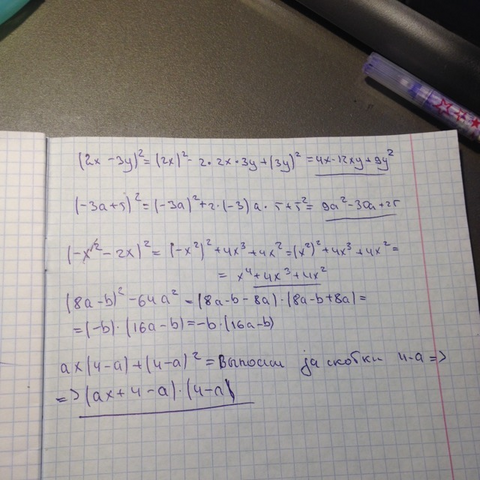 (2x - 3y)² = (2x)² - 2 · 2x · 3y + (3y)² = 4x - 12xy + 9y²
(-3a + 5)² = (-3a)² + 2 · (-3) a · 5 + 5² = 9a² - 30a + 25
(-x² - 2x)² = (-x²)² + 4x³ + 4x² = (x²)² + 4x³ + 4x² =
= x⁴ + 4x³ + 4x²
(8a - b)² - 64a² = (8a - b - 8a) · (8a - b + 8a) =
= (-b) · (16a - b) = -b · (16a - b)
ax(4 - a) + (4 - a)² = Выносим за скобки 4 - a =>
=> (ax + 4 - a) · (4 - a)